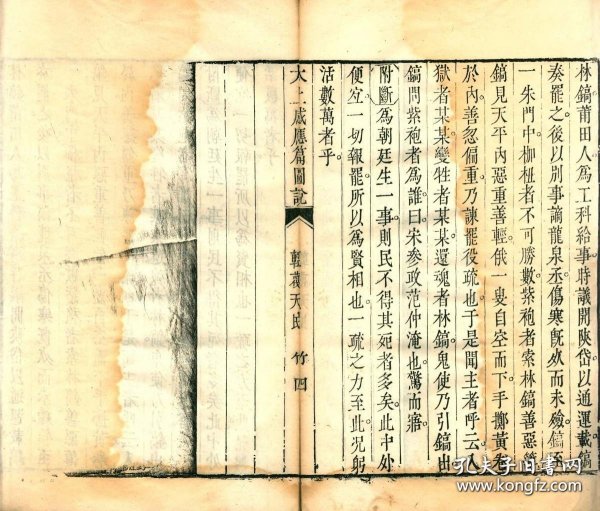 林鎬莆田人爲工科給事時議開陝岱以通運載鎬
奏罷之後以別事謫龍泉丞傷寒既
而未殮鎬至
一朱門中枷杻者不可勝數紫袍者索林鎬善惡簿
鎬見天平內惡重善輕俄一叟自空而下手擲黃卷
於內善忽偏重乃諫罷役疏也于是聞主者呼云入
獄者某某變牲者某某還魂者林鎬鬼使乃引鎬出
鎬問紫袍者爲誰曰宋參政范仲淹也驚而寤
附斷爲朝廷生一事則民不得其死者多矣此中外
便宜一切報罷所以爲賢相也一疏之力至此况躬
活數萬者乎
太上感應篇圖說
輕蔑天民
竹四
孔夫子旧書网
www.kongfz.com